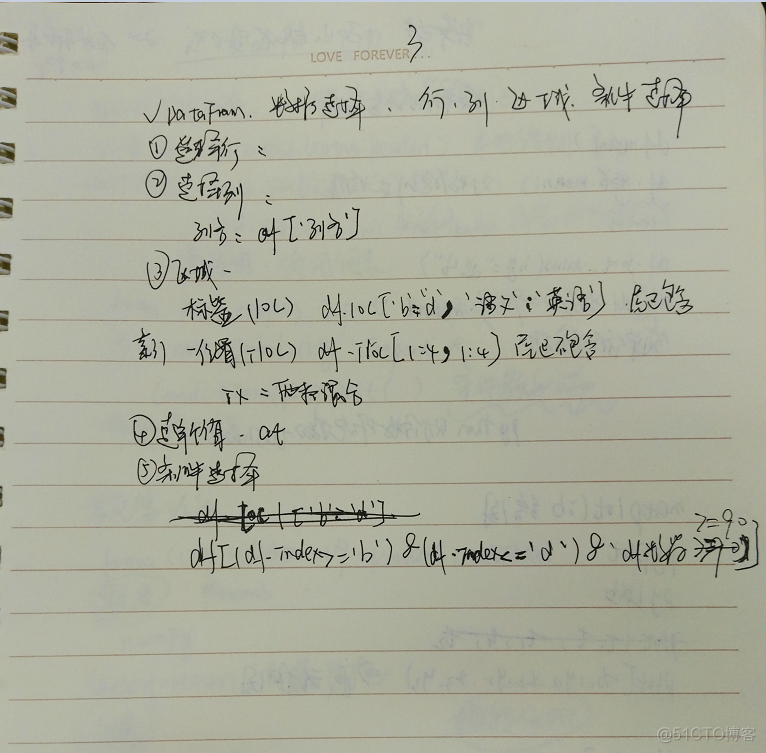 3
LOVE FOREVER...
✓DataFram. 数据选择、行.列.区域.条件选择
①选择行:
②选择列:
列名: df['列名']
③区域-
标签(loc) df.loc['b':'d','语文':'英语'] 后已包含
索引-位置(iloc) df.iloc[1:4,1:4] 后已不包含
ix:两种混合
④选单个值. at
⑤条件选择
df.loc['b':'d'].
>=90
df[(df.index>='b')&(df.index<='d')& df数学]
@51CTO博客